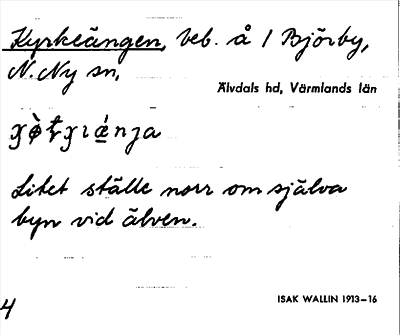 Kyrkeängen, beb. å 1 Björby,
N. Ny sn,
Älvdals hd, Värmlands län
Litet ställe norr om själva
byn vid älven.
ISAK WALLIN 1913–16
4